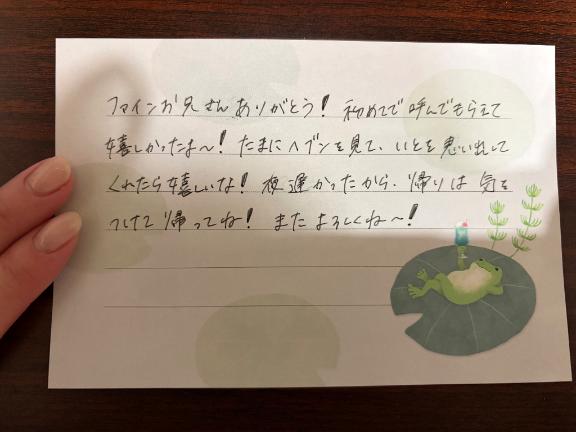 ファインお兄さんありがとう！ 初めてで呼んでもらえて
嬉しかったよ〜！ たまにヘブンを見て、いとを思い出して
くれたら嬉しいな！ 夜遅かったから、帰りは気を
つけて帰ってね！ またよろしくね〜！